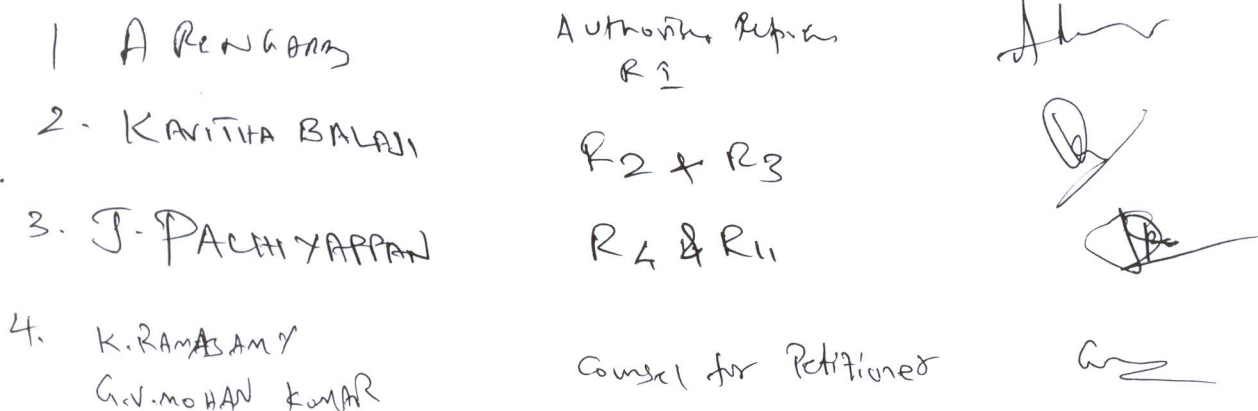 1 A RENGARAJ
R1
2. KAVITHA BALAJI R2 & R3
3. J. PACHIYAPPAN R4 & R11
4. K. RAMASAMY
G.V. MOHAN KUMAR
Counsel for Petitioner